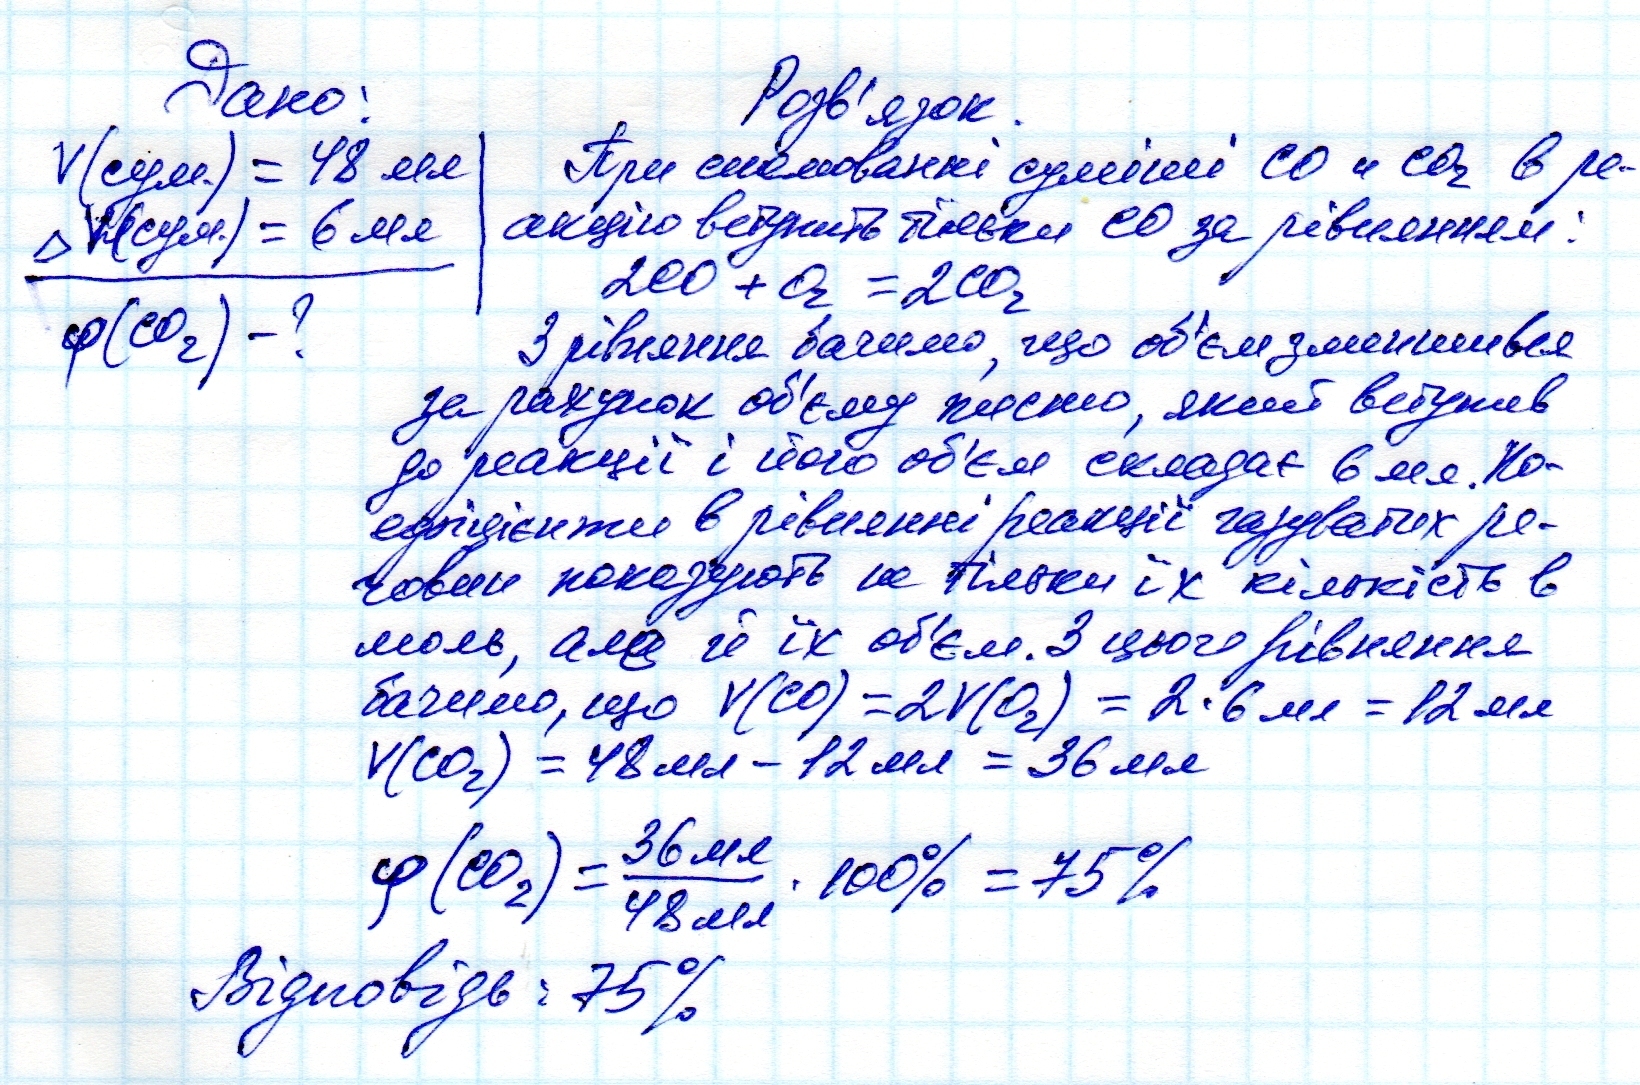 Дано:
Розв'язок.
V(сум.) = 48 мл
ΔV(сум.) = 6 мл
φ(CO₂) - ?
При спалюванні суміші CO и CO₂ в ре-
акцію вступить тільки CO за рівнянням:
2CO + O₂ = 2CO₂
З рівняння бачимо, що об'єм зменшився
за рахунок об'єму кисню, який вступив
до реакції і його об'єм складає 6 мл. Ко-
ефіцієнти в рівнянні реакції газуватих ре-
човин показують не тільки їх кількість в
моль, але й їх об'єм. З цього рівняння
бачимо, що V(CO) = 2V(O₂) = 2·6 мл = 12 мл
V(CO₂) = 48 мл - 12 мл = 36 мл
φ(CO₂) = 36 мл / 48 мл · 100% = 75%
Відповідь: 75%